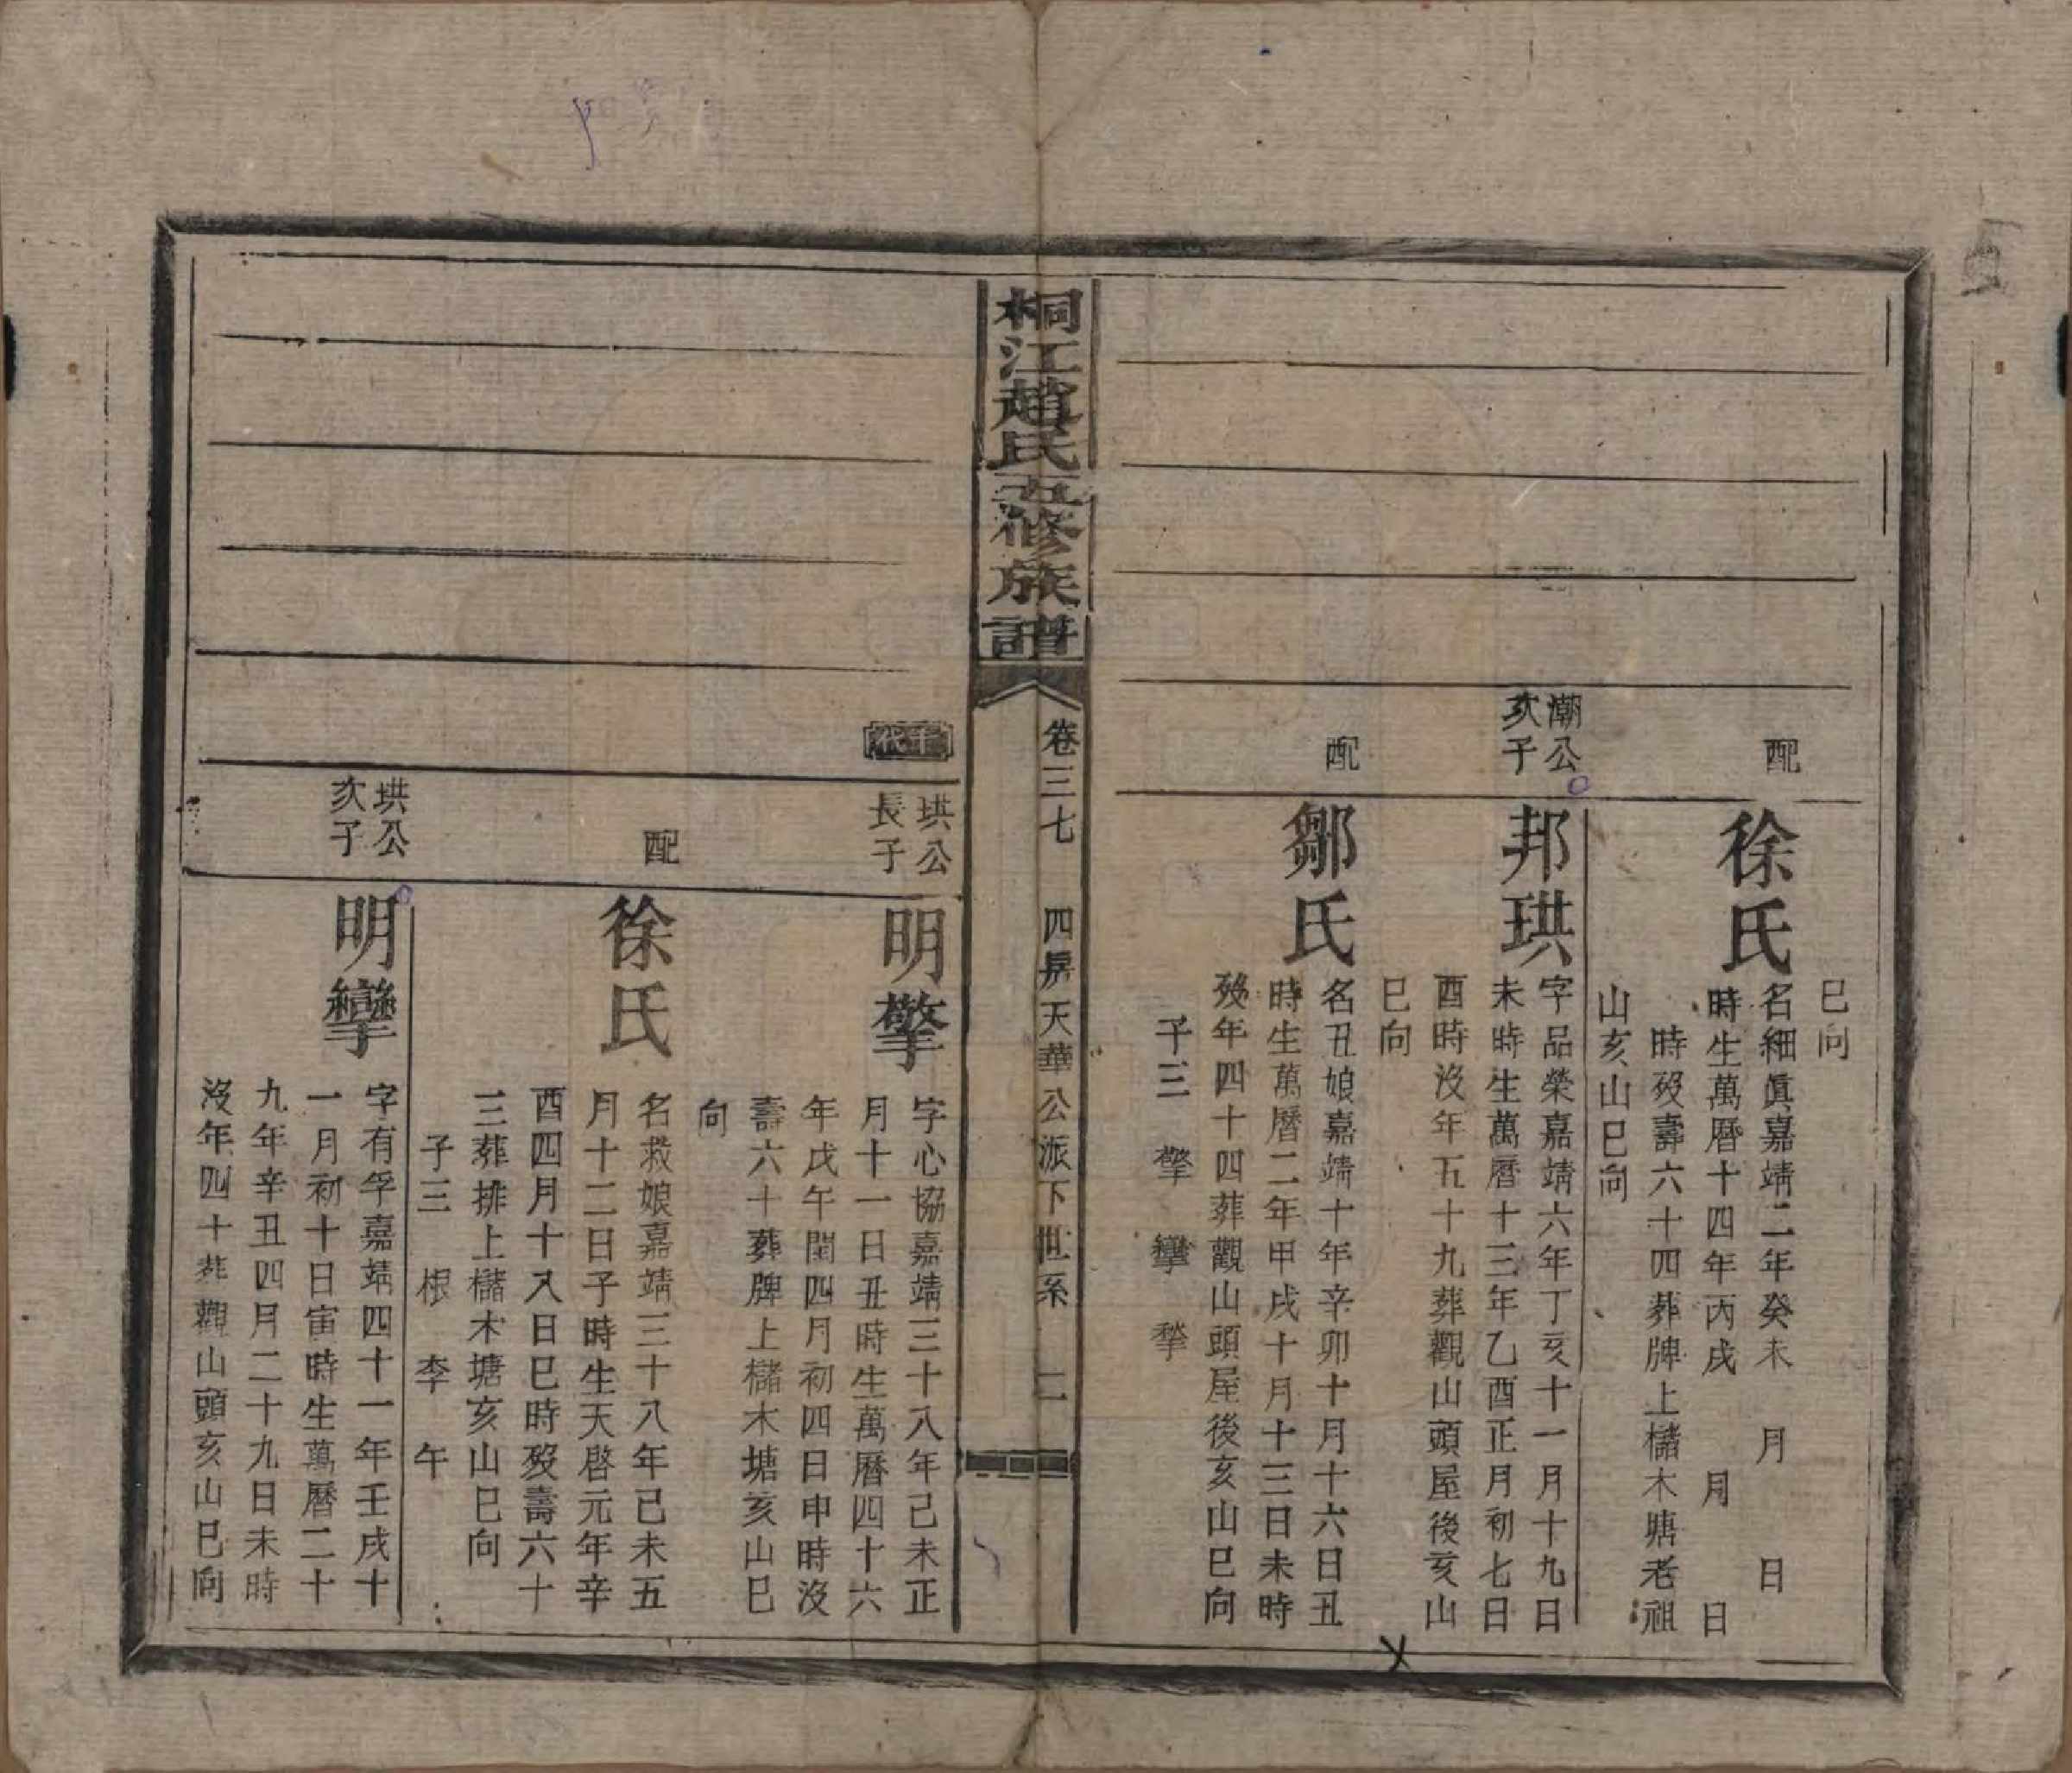 巳向
配
徐氏
名細眞嘉靖二年癸未　月　日
時生萬曆十四年丙戌　月　日
時歿壽六十四葬牌上櫧木塘老祖
山亥山巳向
潮公
次子
邦珙
字品榮嘉靖六年丁亥十一月十九日
未時生萬曆十三年乙酉正月初七日
酉時沒年五十九葬觀山頭屋後亥山
巳向
配
鄒氏
名丑娘嘉靖十年辛卯十月十六日丑
時生萬曆二年甲戌十月十三日未時
歿年四十四葬觀山頭屋後亥山巳向
子三　擎　攣　㨗
桐江趙氏五修族譜
卷三七　四房天華公派下世系　二
十代
珙公
長子
明擎
字心協嘉靖三十八年己未正
月十一日丑時生萬曆四十六
年戊午閏四月初四日申時沒
壽六十葬牌上櫧木塘亥山巳
向
配
徐氏
名救娘嘉靖三十八年己未五
月十二日子時生天啓元年辛
酉四月十八日巳時歿壽六十
三葬排上櫧木塘亥山巳向
子三　根　李　午
珙公
次子
明攣
字有孚嘉靖四十一年壬戌十
一月初十日寅時生萬曆二十
九年辛丑四月二十九日未時
沒年四十葬觀山頭亥山巳向